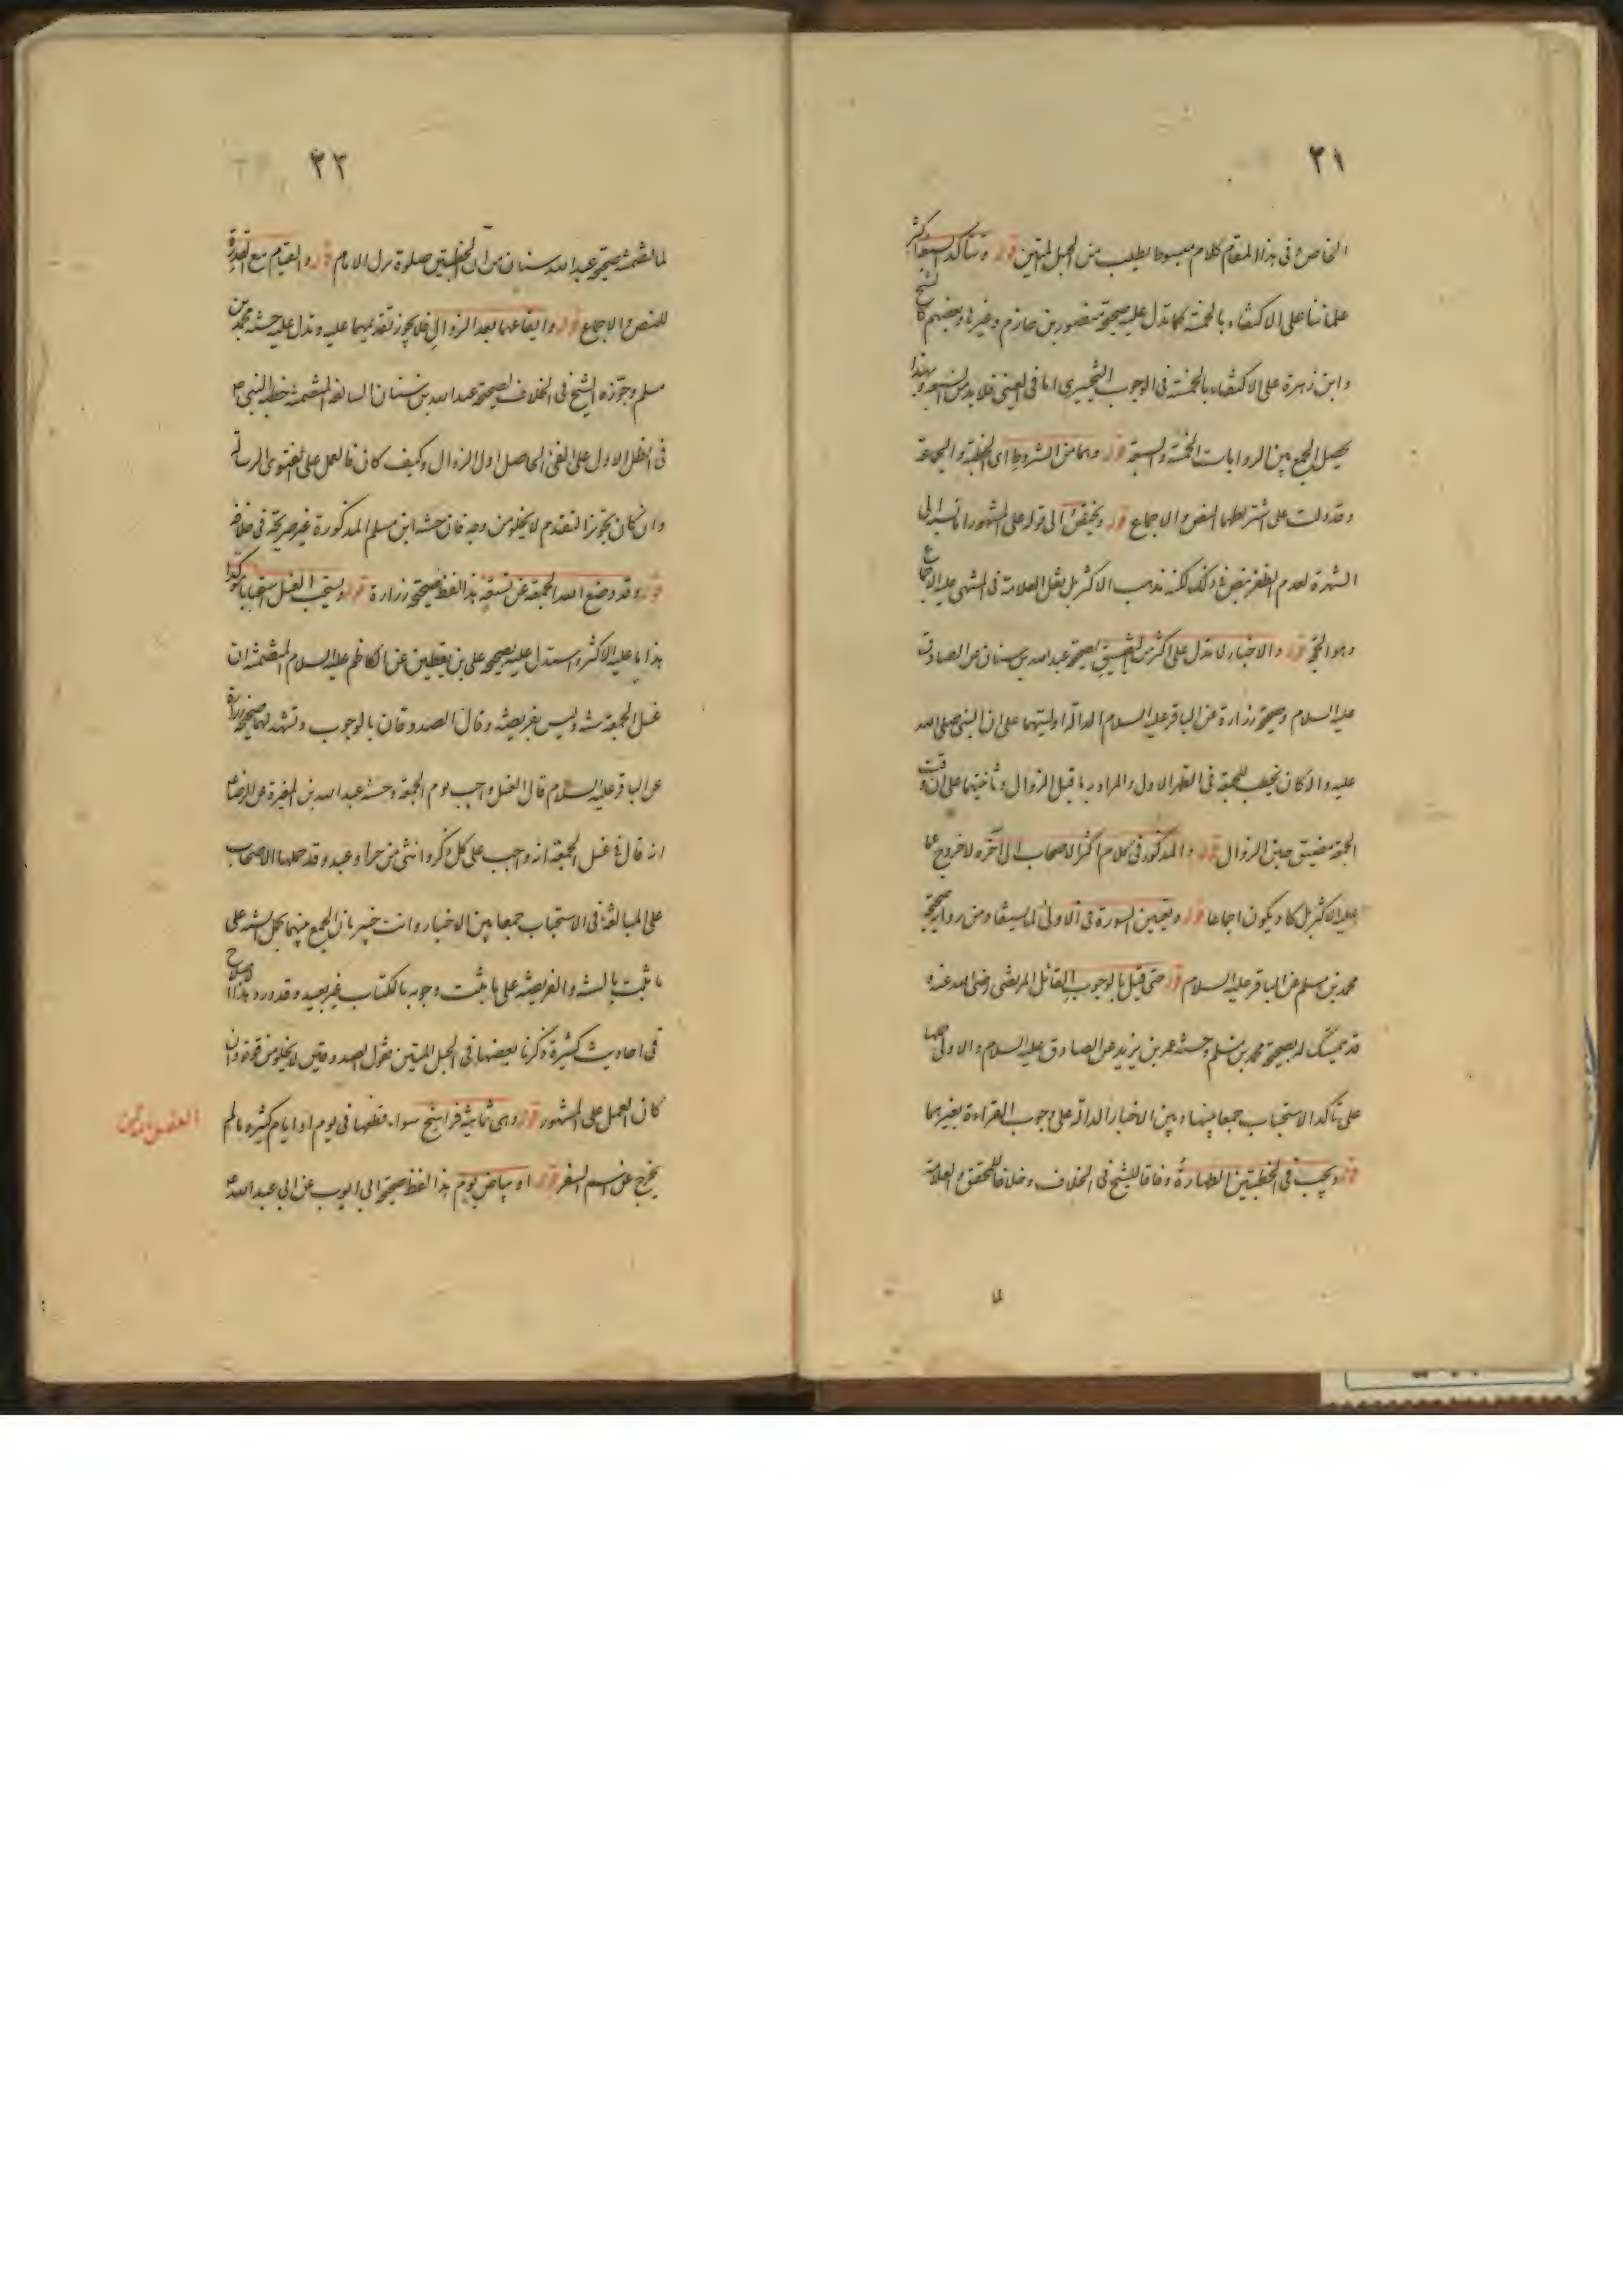 ٢١
الخاص وفى هذا المقام كلام مبسوط يطلب من الحبل المتين قوله وتتأكد السبعة اكثر
علمائنا على الاكتفاء بالخمسة كما تدل عليه صحيحة منصور بن حازم وغيرها وبعضهم كالشيخ
وابن زهرة على الاكتفاء بالخمسة فى الوجوب التخييرى اما فى العينى فلا بد من السبعة وبهذا
يحصل الجمع بين الروايات الخمسة والسبعة قوله وهما من الشروط اى الخطبة والجماعة
وقد دلت على اشتراطهما النص والاجماع قوله على المشهور انما نسبه الى
الشهرة لعدم الظفر بنص فى ذلك لكنه مذهب الاكثر بل نقل العلامة فى المنتهى عليه الاجماع
وهو الحجة قوله والاخبار لا تدل على اكثر من التضييق كصحيحة عبد الله بن سنان عن الصادق
عليه السلام وصحيحة زرارة عن الباقر عليه السلام الدالة اوليتهما على ان النبى صلى الله
عليه واله كان يخطب للجمعة فى الظل الاول والمراد به ما قبل الزوال وثانيتهما على ان وقت
الجمعة مضيق حين الزوال قوله والمذكور فى كلام اكثر الاصحاب الى آخره لا خروج عما
عليه الاكثر بل كاد يكون اجماعا قوله وتعيين السورة فى الاولى لما سيتفاد من رواية صحيحة
محمد بن مسلم عن الباقر عليه السلام قوله حتى قيل بالوجوب القائل المرتضى رضى الله عنه و
قد يتمسك له بصحيحة محمد بن مسلم وحسنة عمر بن يزيد عن الصادق عليه السلام والاولى حملها
على تأكد الاستحباب جمعا بينها وبين الاخبار الدالة على وجوب القراءة بغيرهما
قوله ويجب فى الخطبتين الطهارة وفاقا للشيخ فى الخلاف وخلافا للمحقق والعلامة
لما
٢٢
لما تضمنته صحيحة عبد الله بن سنان من ان الخطبتين صلوة حتى ينزل الامام قوله والقيام مع القدرة
للنص والاجماع قوله وايقاعهما بعد الزوال فلا يجوز تقديمهما عليه وتدل عليه حسنة محمد بن
مسلم وجوزه الشيخ فى الخلاف لصحيحة عبد الله بن سنان السالفة المتضمنة خطبة النبى ص
فى الظل الاول على الفئ الحاصل اول الزوال وكيف كان فالعمل على الفتوى الرسالة
وان كان تجويز التقدم لا يخلو من وجه فان حسنة ابن مسلم المذكورة غير صريحة فى خلافه
قوله وقد وضع الله الجمعة عن تسعة هذا لفظ صحيحة زرارة قوله ويستحب الغسل استحبابا مؤكدا
هذا ما عليه الاكثر واستدل عليه بصحيحة على بن يقطين عن الكاظم عليه السلام المتضمنة ان
غسل الجمعة سنة وليس بفريضة وقال الصدوقان بالوجوب وتشهد لهما صحيحة زرارة
عن الباقر عليه السلام قال الغسل واجب يوم الجمعة وحسنة عبد الله بن المغيرة عن الرضا ع
انه قال فى غسل الجمعة انه واجب على كل ذكر وانثى من حر او عبد وقد حملها الاصحاب
على المبالغة فى الاستحباب جمعا بين الاخبار وانت خبير بان الجمع بينهما بحمل السنة على
ما ثبت بالسنة والفريضة على ما يثبت وجوبه بالكتاب غير بعيد وقد ورد هذا الاصطلاح
فى احاديث كثيرة ذكرنا بعضها فى الحبل المتين فقول الصدوقين لا يخلو من قوة وان
كان العمل على المشهور قوله وهى ثمانية فراسخ سواء قطعها فى يوم او ايام كثيره ما لم
يخرج عن اسم السفر قوله او بياض يوم هذا لفظ صحيحة ابى ايوب عن ابى عبد الله ع